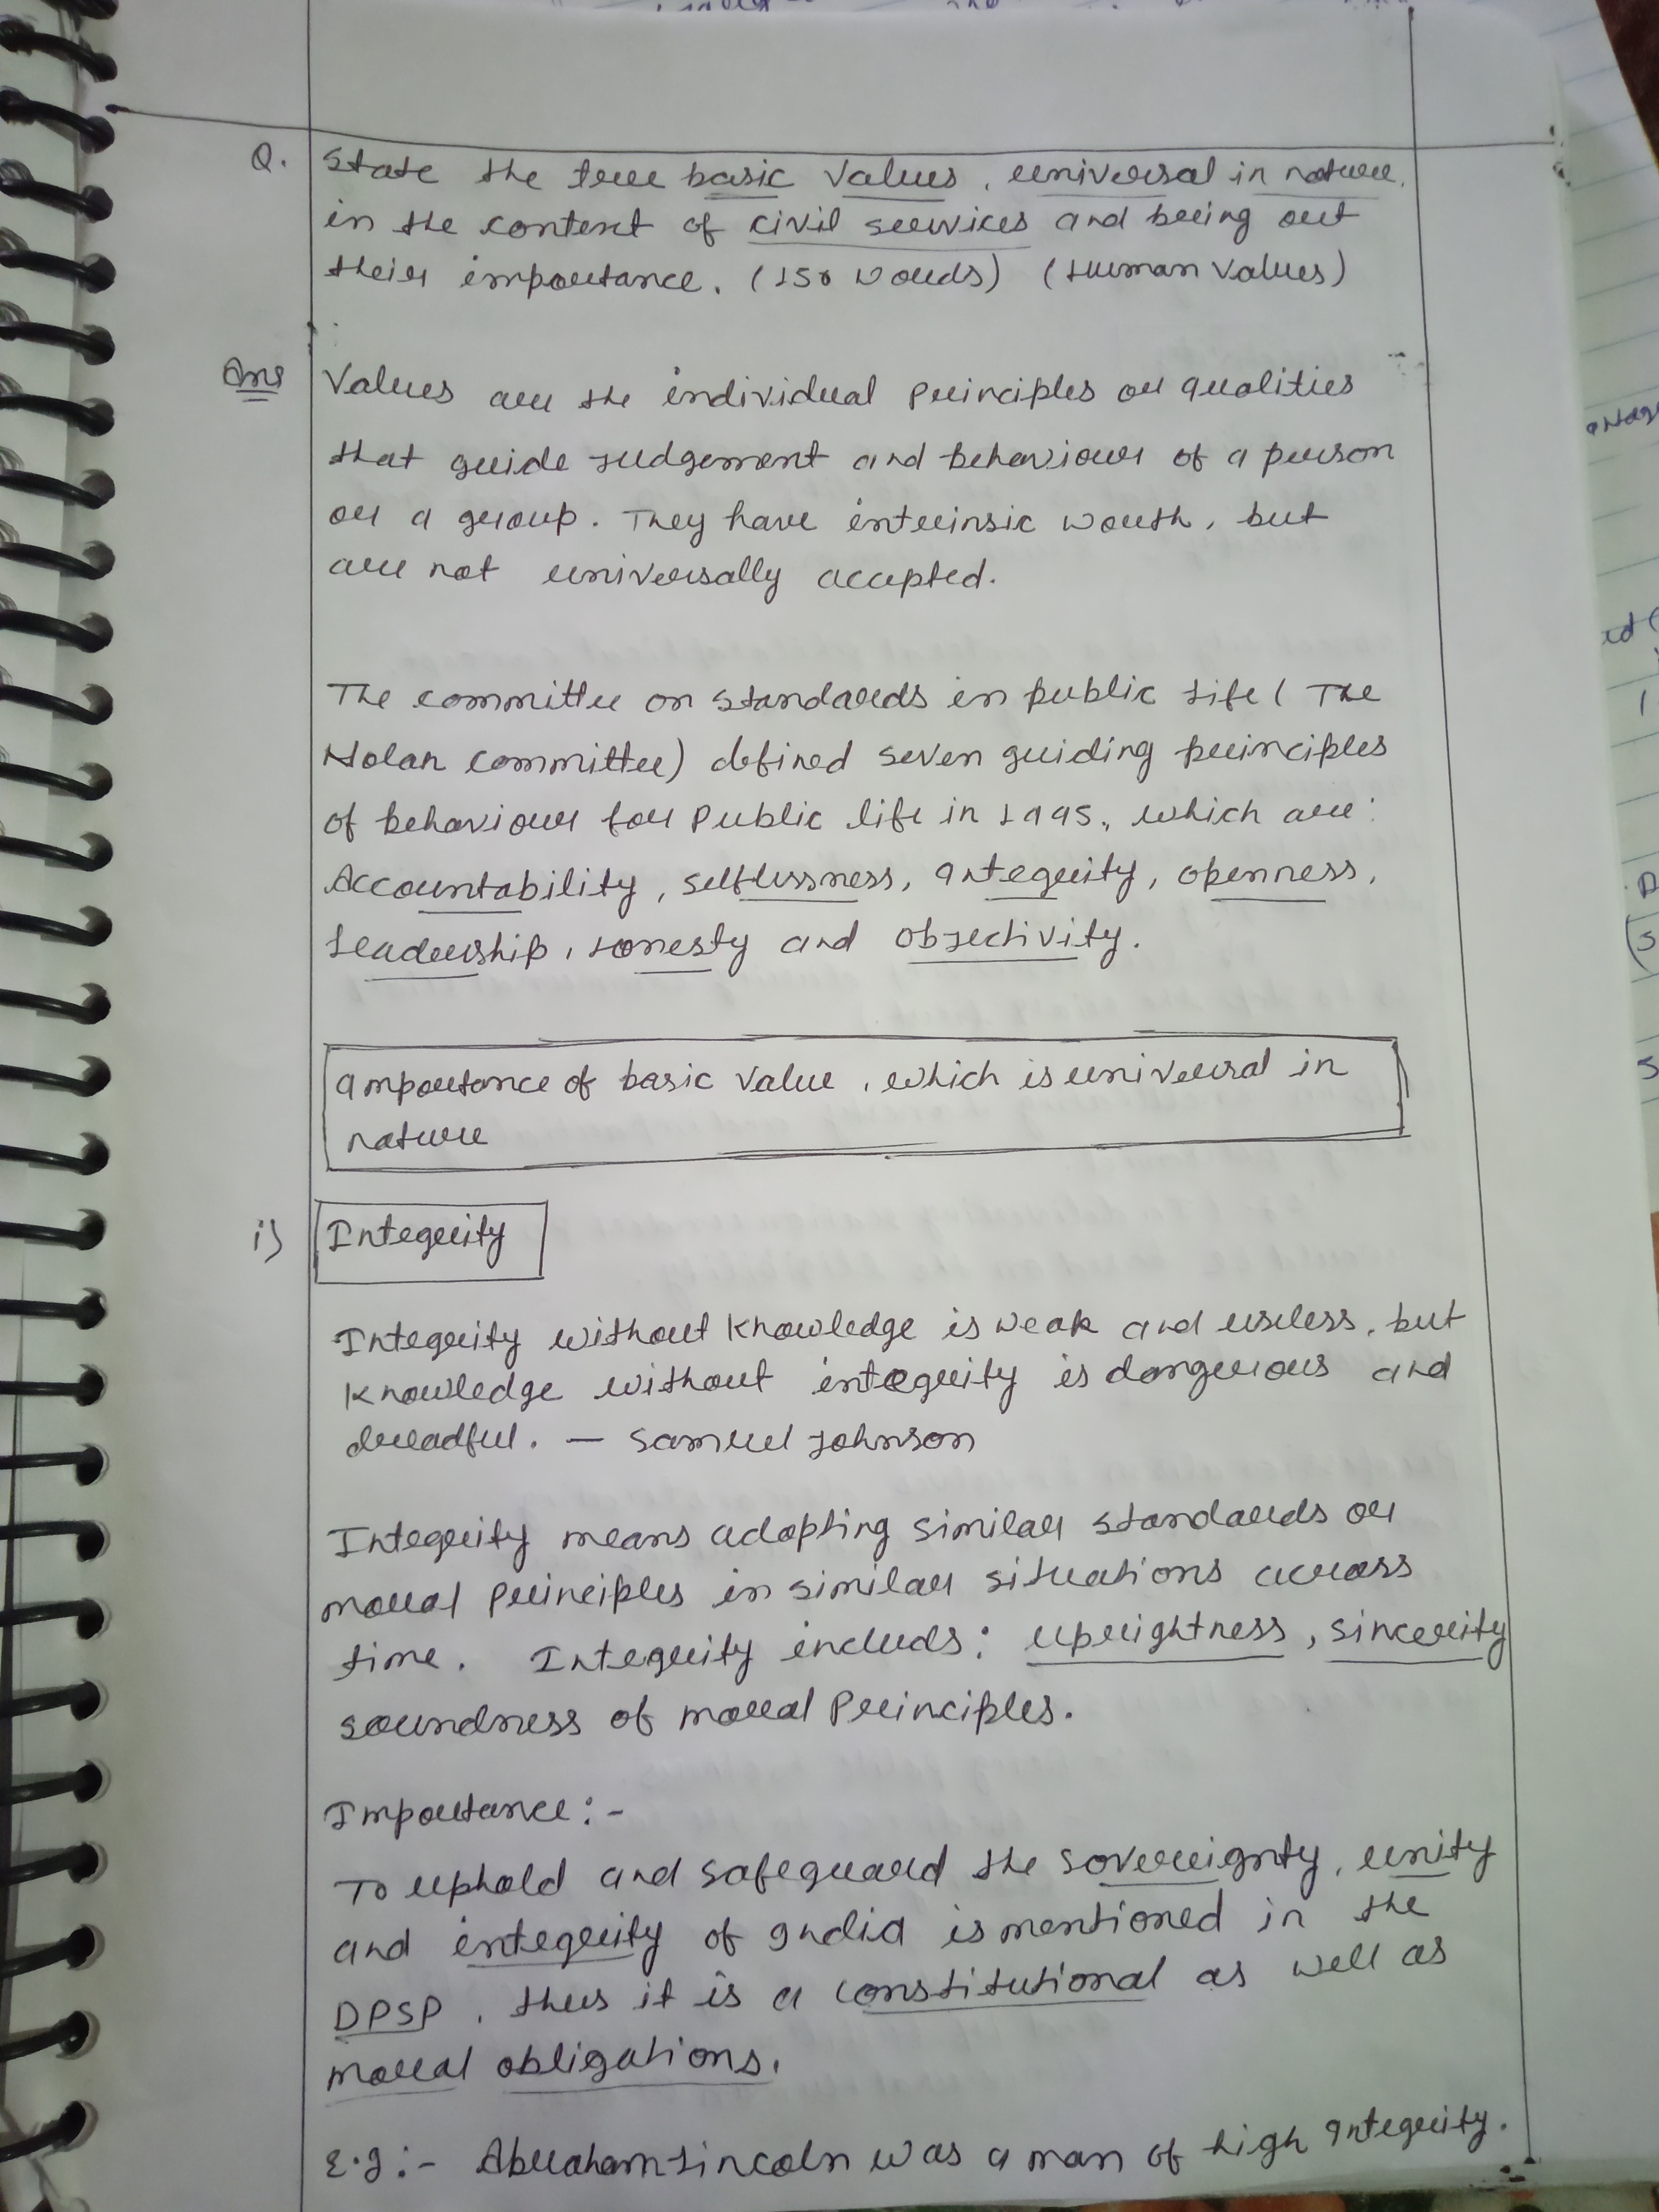 Q. State the three basic values, universal in nature,
in the context of civil services and bring out
their importance. (150 words) (Human Values)
Ans Values are the individual principles or qualities
that guide judgement and behaviour of a person
or a group. They have intrinsic worth, but
are not universally accepted.
The committee on standards in public life (The
Nolan committee) defined seven guiding principles
of behaviour for public life in 1995, which are:
Accountability, selflessness, Integrity, openness,
Leadership, Honesty and objectivity.
Importance of basic value, which is universal in
nature
i) Integrity
Integrity without knowledge is weak and useless, but
knowledge without integrity is dangerous and
dreadful. — Samuel Johnson
Integrity means adopting similar standards or
moral principles in similar situations across
time. Integrity includs: uprightness, sincerity
soundness of moral Principles.
Importance:-
To uphold and safeguard the sovereignty, unity
and integrity of India is mentioned in the
DPSP, thus it is a constitutional as well as
moral obligations.
E.g:- Abraham Lincoln was a man of high Integrity.